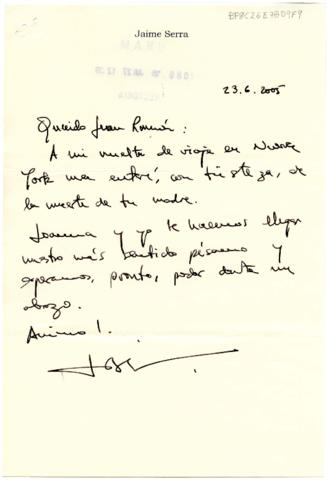 Jaime Serra
BFBC26E7BD9F9
23.6.2005
Querido Juan Román:
A mi vuelta de viaje en Nueva
York me enteré, con tristeza, de
la muerte de tu madre.
Joanna y yo te hacemos llegar
nuestro más sentido pésame y
esperamos, pronto, poder darte un
abrazo.
Animo!